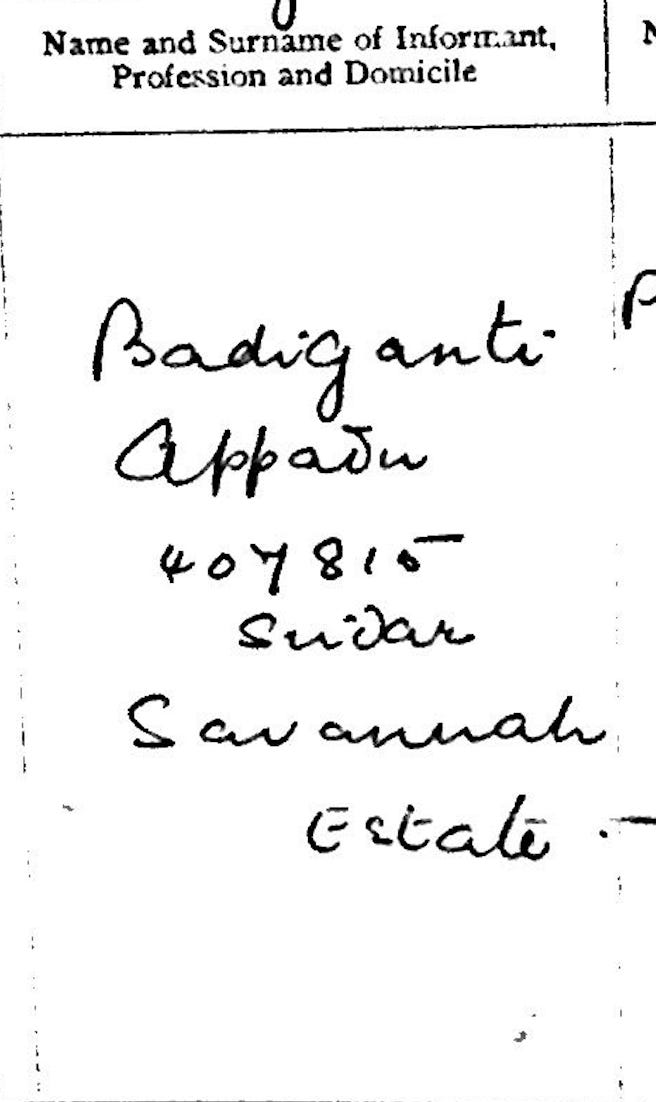 Name and Surname of Informant,
Profession and Domicile
Badiganti
Appadu
407815
Sirdar
Savannah
Estate